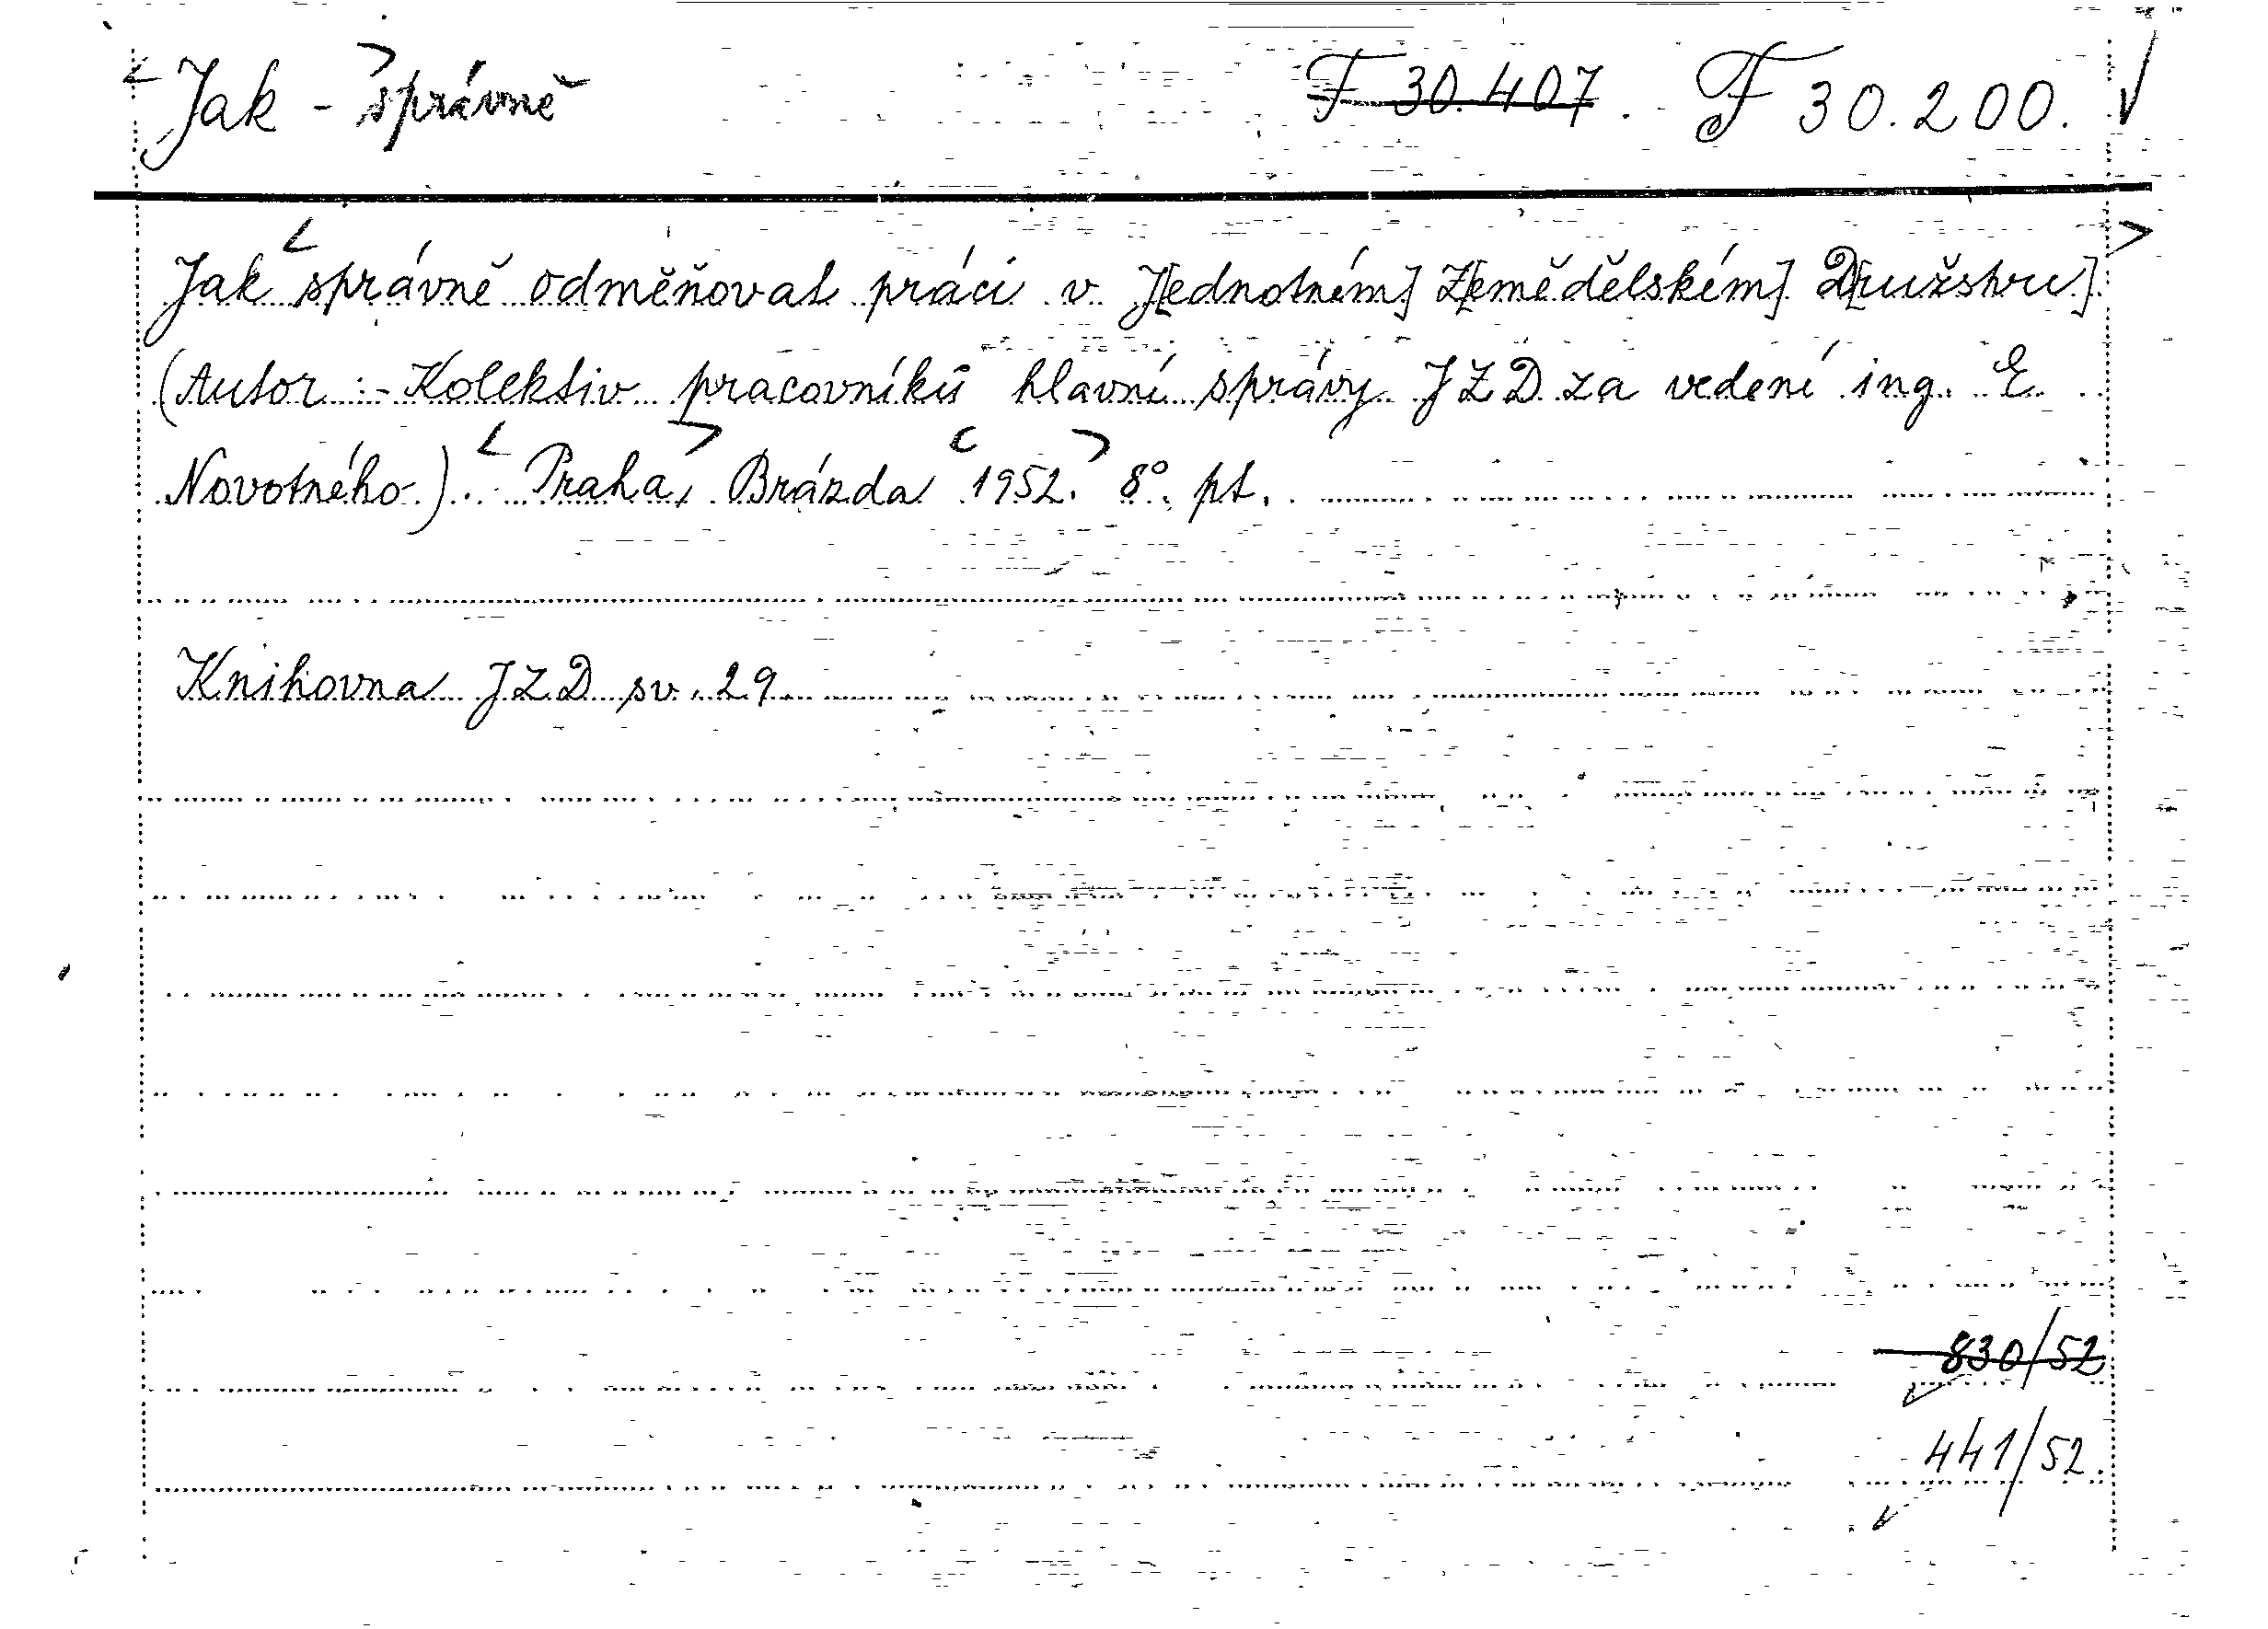 Jak - správně F 30.407. F 30.200.
Jak správně odměňovat práci v J[ednotném] Z[emědělském] D[ružstvu].
(Autor :- Kolektiv pracovníků hlavní správy JZD za vedení ing. E.
Novotného). Praha, Brázda 1952. 8°. pt.
Knihovna JZD sv. 29.
830/52
441/52.